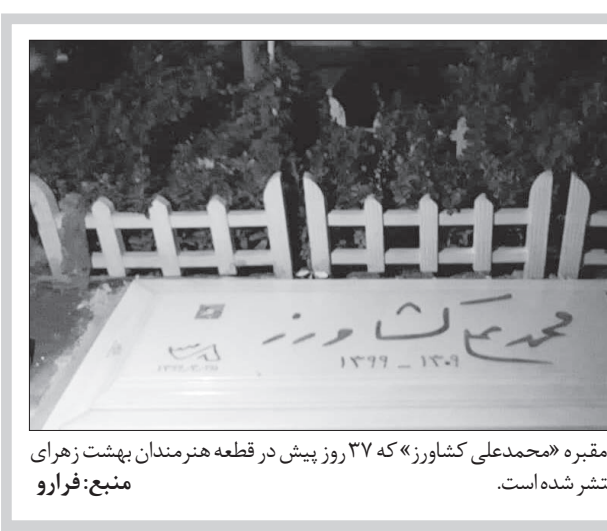 محمدعلی کشاورز
۱۳۰۹ _ ۱۳۹۹
مقبره «محمدعلی کشاورز» که ۳۷ روز پیش در قطعه هنرمندان بهشت زهرای
تشر شده است. منبع: فرارو